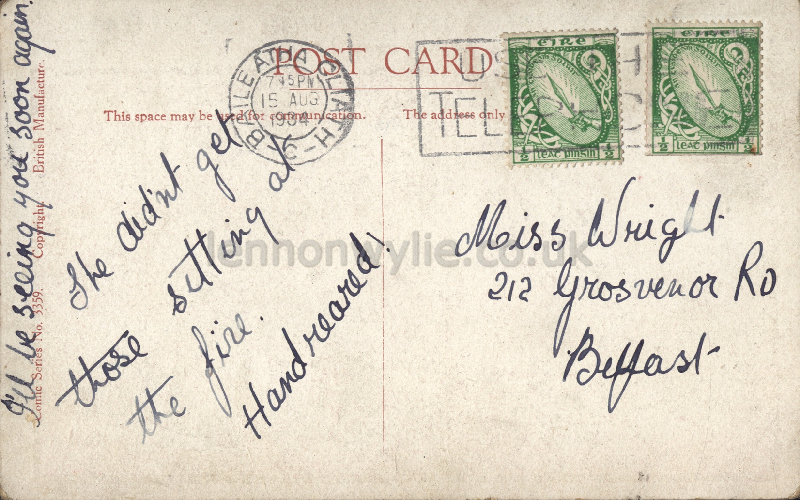 POST CARD
This space may be used for communication.
The address only
BAILE ATHA CLIATH-C
.45PM
15 AUG
TEL
EIRE
½ LEAT PINSIN ½
EIRE
½ LEAT PINSIN ½
I'll be seeing you soon again.
Comic Series No. 3359. Copyright. British Manufacture.
She didn't get
those sitting at
the fire.
Handreared!
Miss Wright
212 Grosvenor RD
Belfast
lennonwylie.co.uk